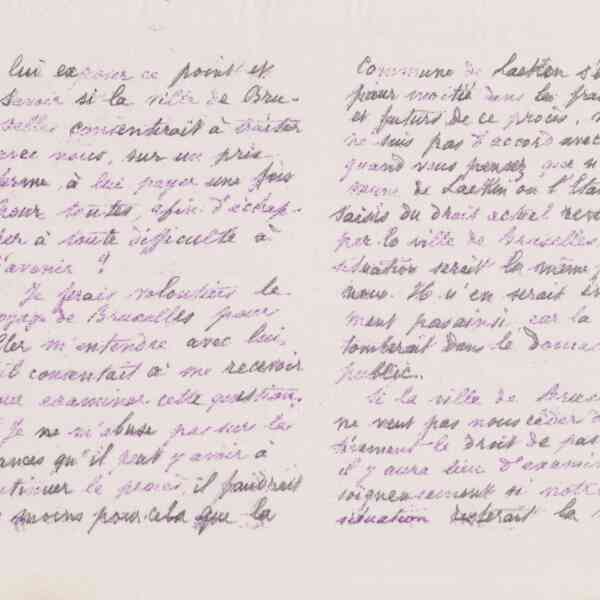 lui exposer ce point et
savoir si la ville de Bru-
xelles consentirait à traiter
avec nous, sur un prix
ferme, à lui payer une fois
pour toutes, afin d'échap-
per à toute difficulté à
l'avenir ?
Je ferais volontiers le
voyage de Bruxelles pour
aller m'entendre avec lui,
s'il consentait à me recevoir
pour examiner cette question.
Je ne m'abuse pas sur les
chances qu'il peut y avoir à
continuer le procès, il faudrait
moins pour cela que la
Commune de Laeken s'e
pour moitié dans les frai
et futurs de ce procès,
ne suis pas d'accord avec
quand vous pensez que
de Laeken ou l'Eta
saisis du droit actuel
par la ville de Bruxelles,
situation serait la même p
nous. Il n'en serait
ment pas ainsi, car la
tomberait dans le Domai
public.
Si la ville de Bruxe
ne veut pas nous céder
le droit de pas
il y aura lieu d'examin
soigneusement si notr
situation resterait la